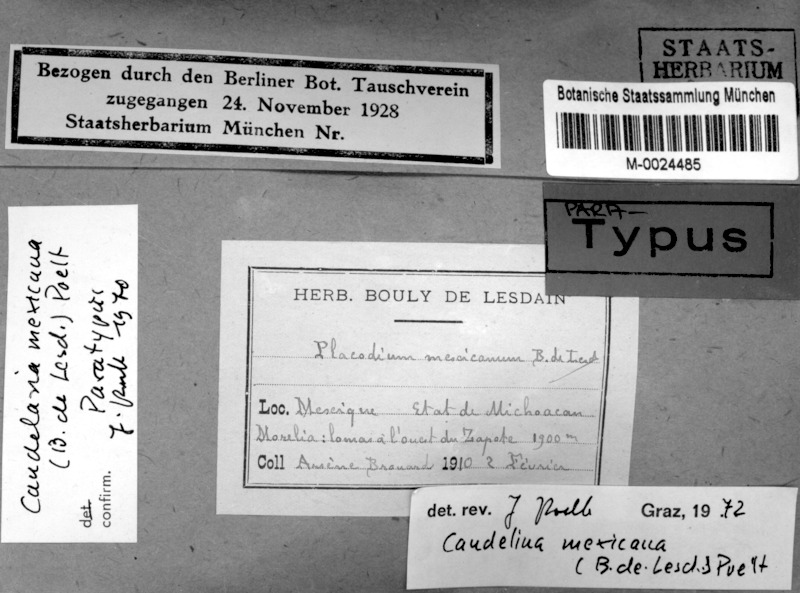 Bezogen durch den Berliner Bot. Tauschverein
zugegangen 24. November 1928
Staatsherbarium München Nr.
STAATS-
HERBARIUM
Botanische Staatssammlung München
M-0024485
PARA-
Typus
Candelaria mexicana
(B. de Lesd.) Poelt
Paratypus
J. Poelt 1970
det.
confirm.
HERB. BOULY DE LESDAIN
Placodium mexicanum B. de Lesd
Loc. Mexique Etat de Michoacan
Morelia: lomas à l'ouest du Zapote 1900 m
Coll Arsène Brouard 1910 2 Février
det. rev. J Poelt Graz, 1972
Candelina mexicana
(B. de. Lesd.) Poelt